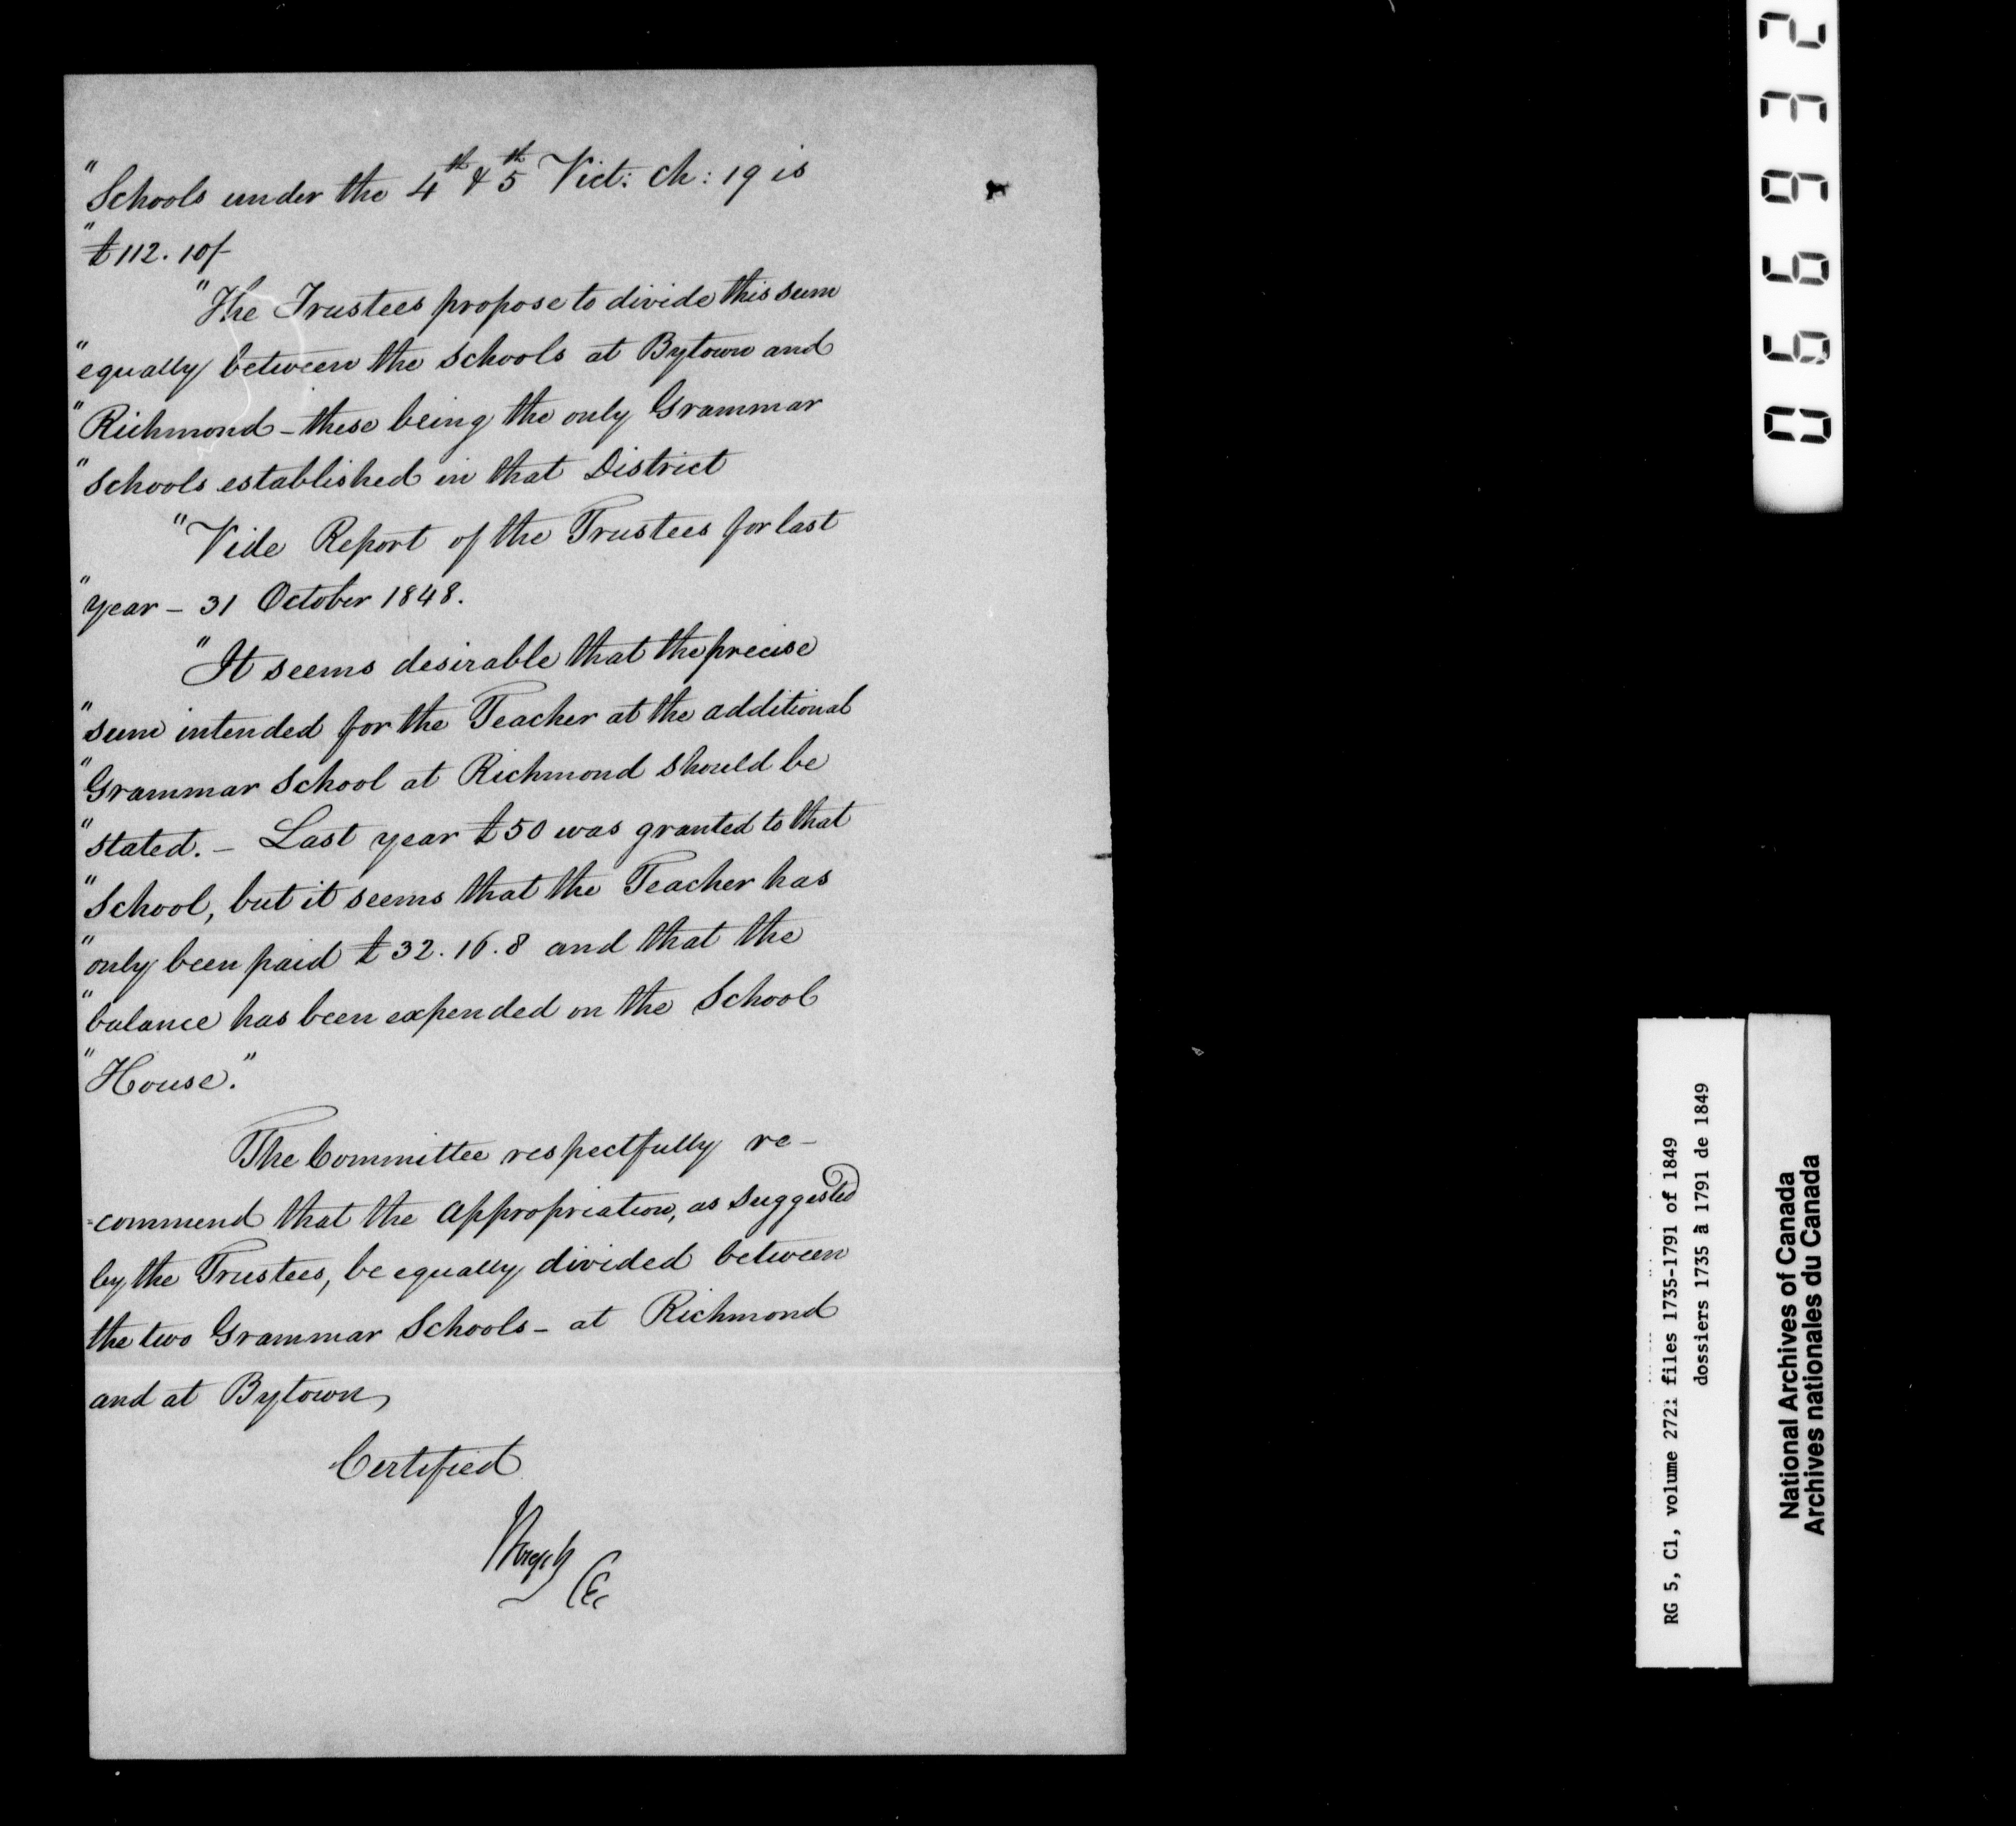 "Schools under the 4th & 5th Vict: ch: 19 is
"£112. 10/-
"The Trustees propose to divide this sum
"equally between the Schools at Bytown and
"Richmond - these being the only Grammar
"Schools established in that District
"Vide Report of the Trustees for last
"year - 31 October 1848.
"It seems desirable that the precise
"sum intended for the Teacher at the additional
"Grammar School at Richmond should be
"stated. - Last year £50 was granted to that
"School, but it seems that the Teacher has
"only been paid £32. 16. 8 and that the
"balance has been expended on the School
"House."
The Committee respectfully re-
=commend that the Appropriation, as suggested
by the Trustees, be equally divided between
the two Grammar Schools - at Richmond
and at Bytown,
Certified
066932
RG 5, C1, volume 272: files 1735-1791 of 1849
dossiers 1735 à 1791 de 1849
National Archives of Canada
Archives nationales du Canada